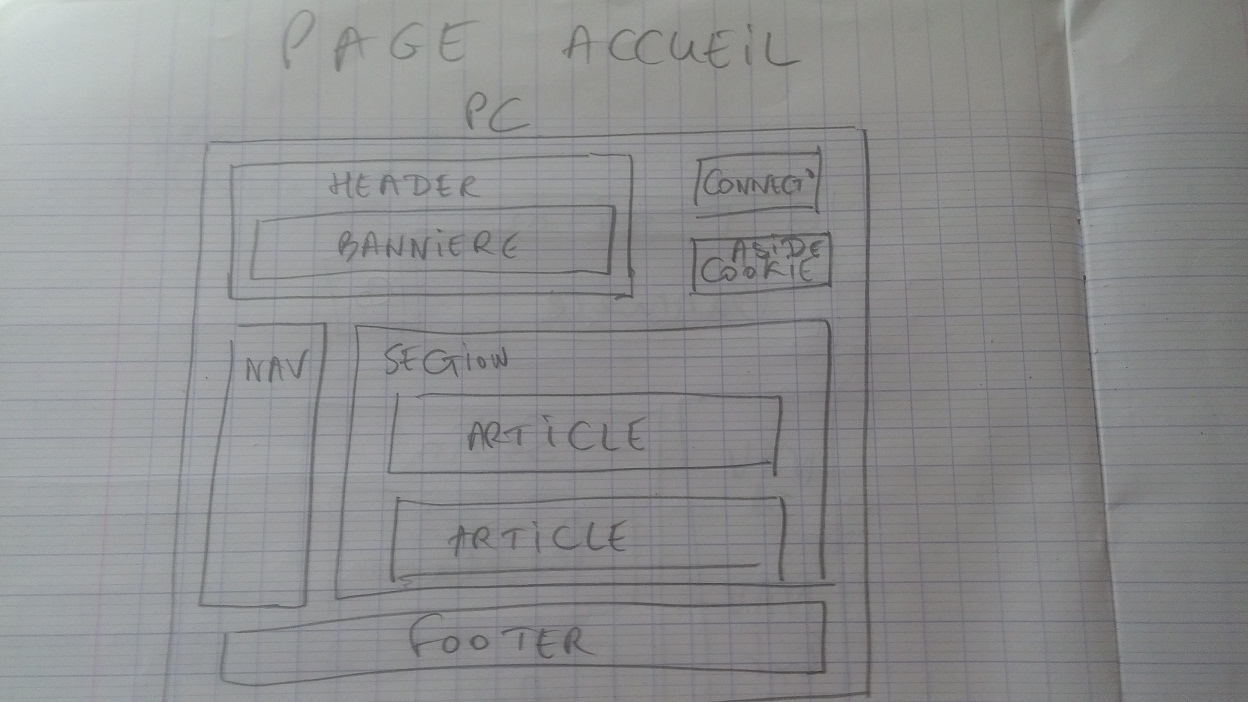 PAGE ACCUEIL
PC
HEADER
BANNIERE
CONNEC°
ASIDE
COOKIE
NAV
SECTION
ARTICLE
ARTICLE
FOOTER